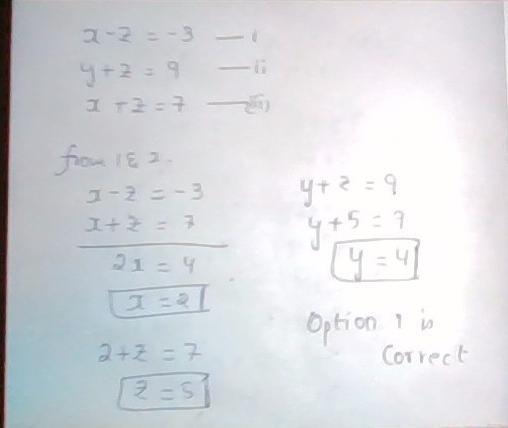 x - z = -3 — i
y + z = 9 — ii
x + z = 7 — iii)
from 1 & 2.
x - z = -3
x + z = 7
2x = 4
x = 2
2 + z = 7
z = 5
y + z = 9
y + 5 = 9
y = 4
Option 1 is
Correct